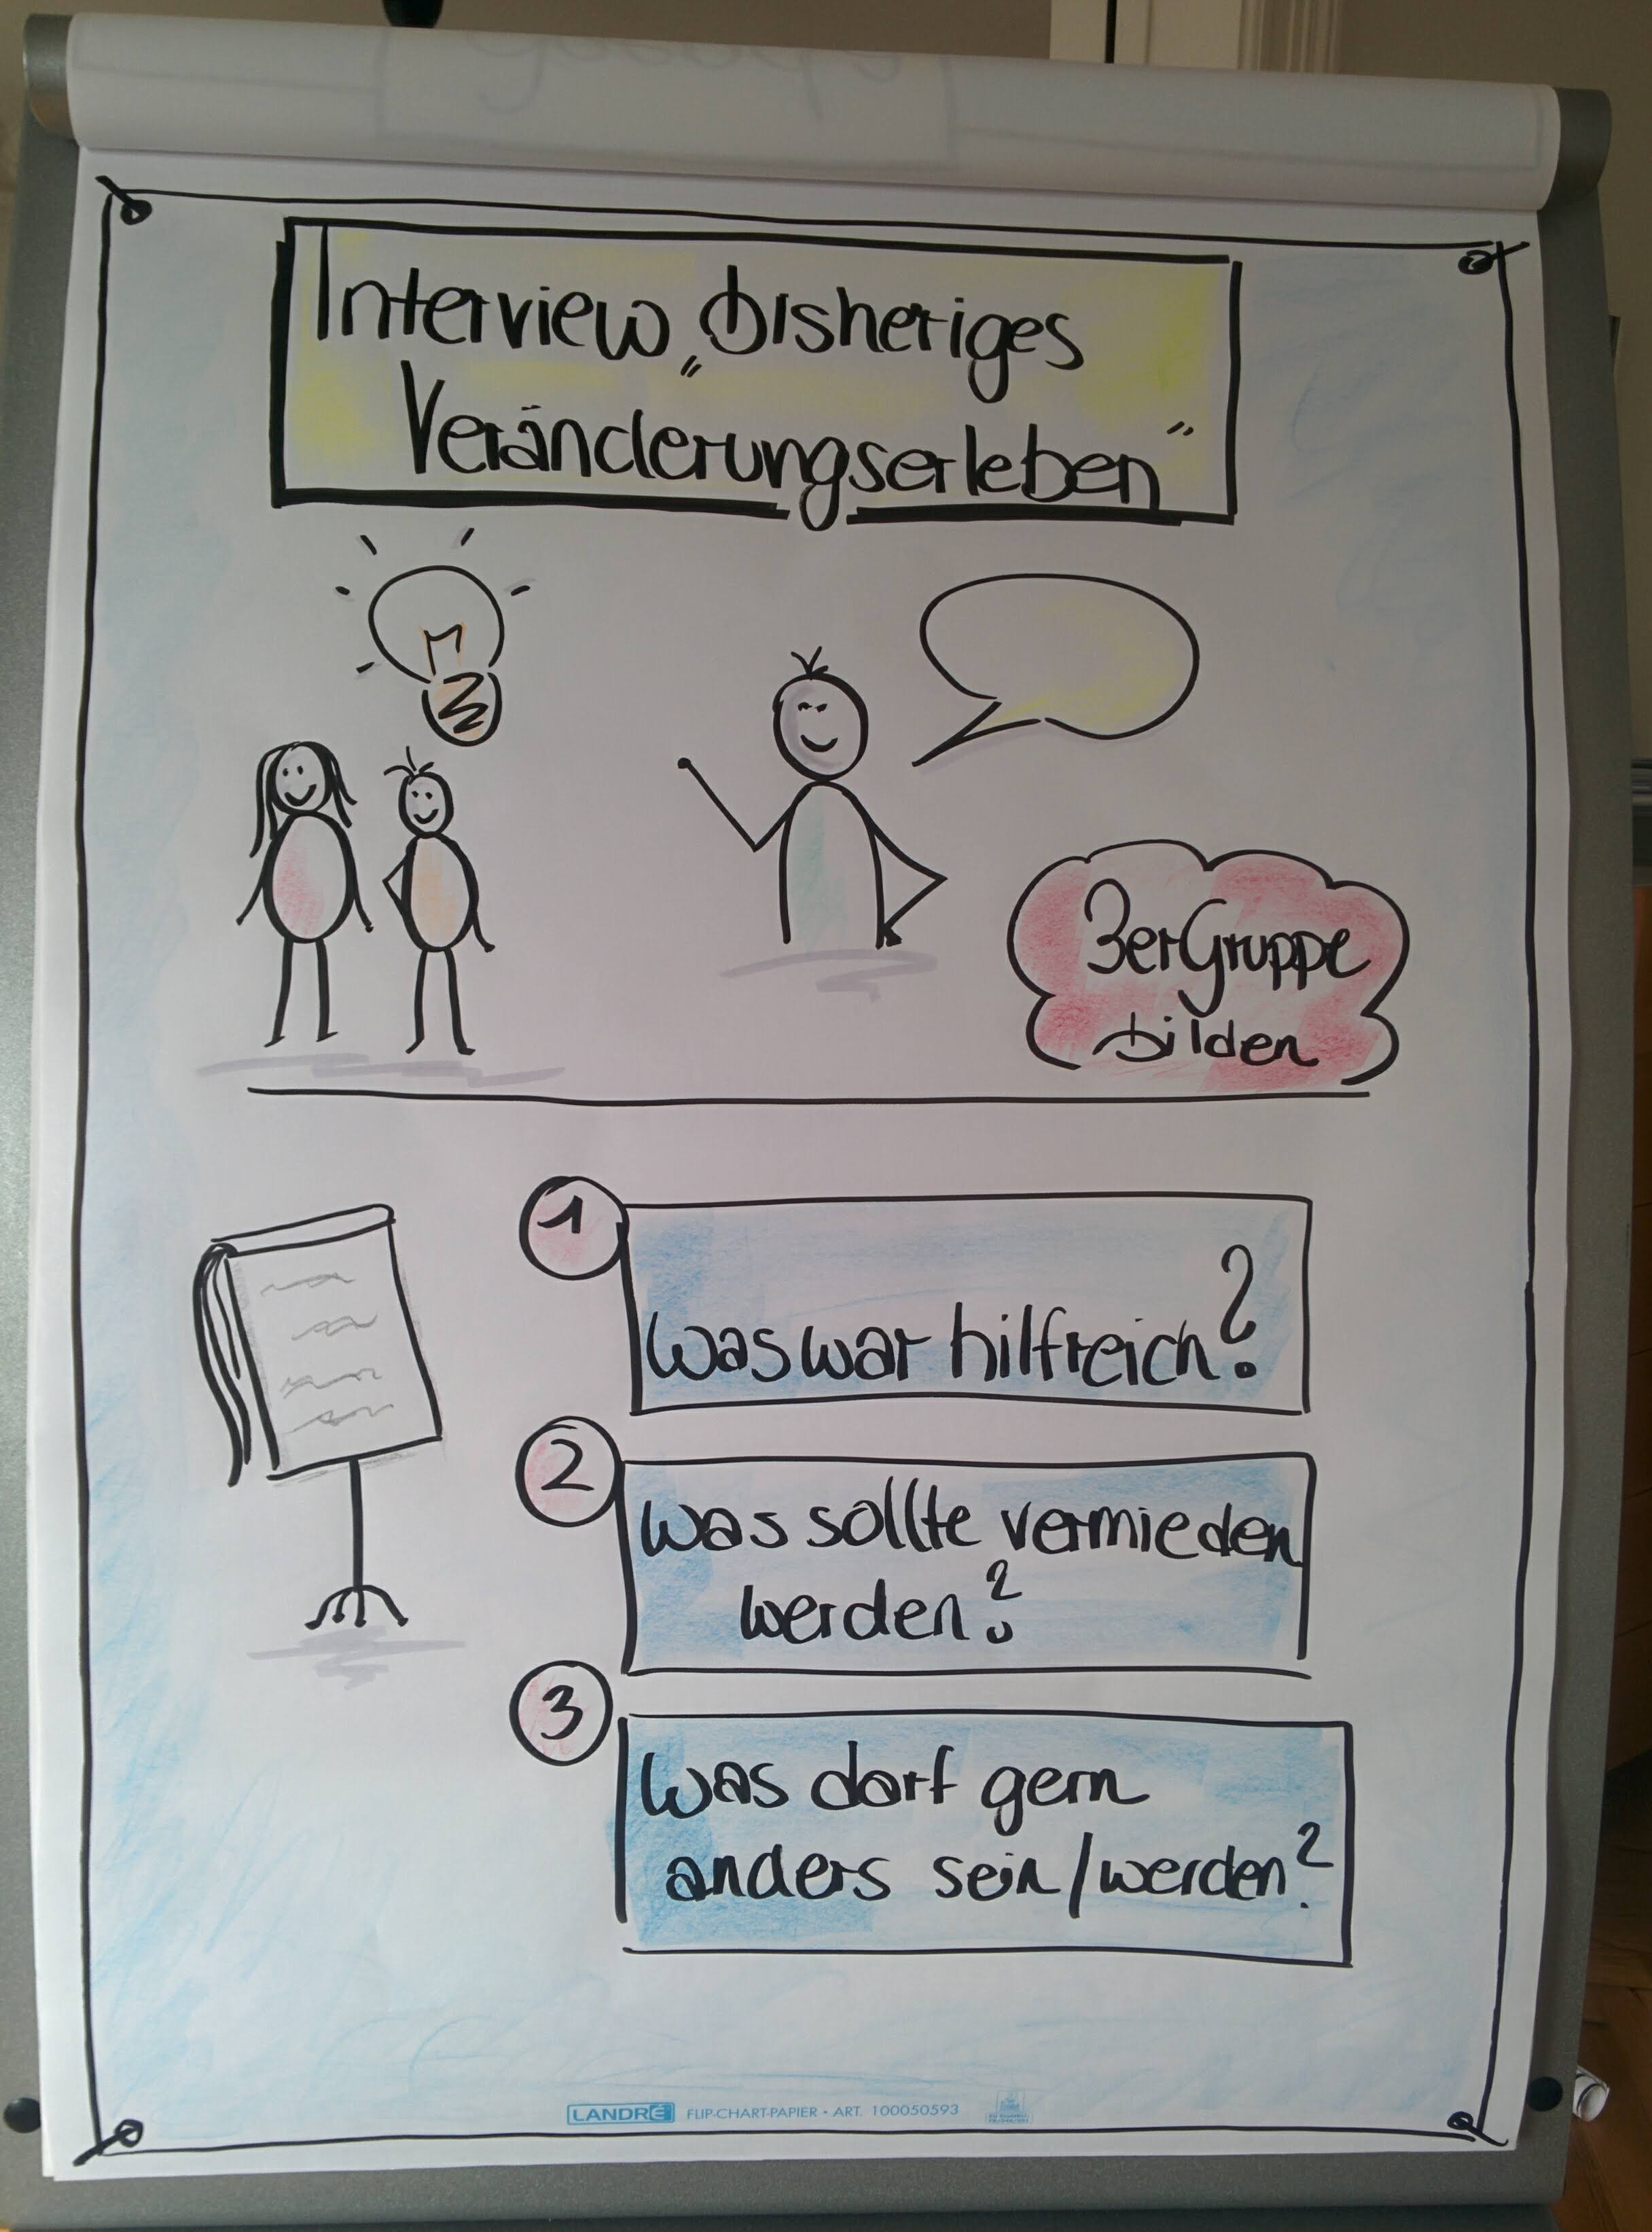 Interview „bisheriges
Veränderungserleben"
3er Gruppe
bilden
1
Was war hilfreich?
2
Was sollte vermieden
werden?
3
Was darf gern
anders sein/werden?
LANDRÉ FLIP-CHART-PAPIER • ART. 100050593